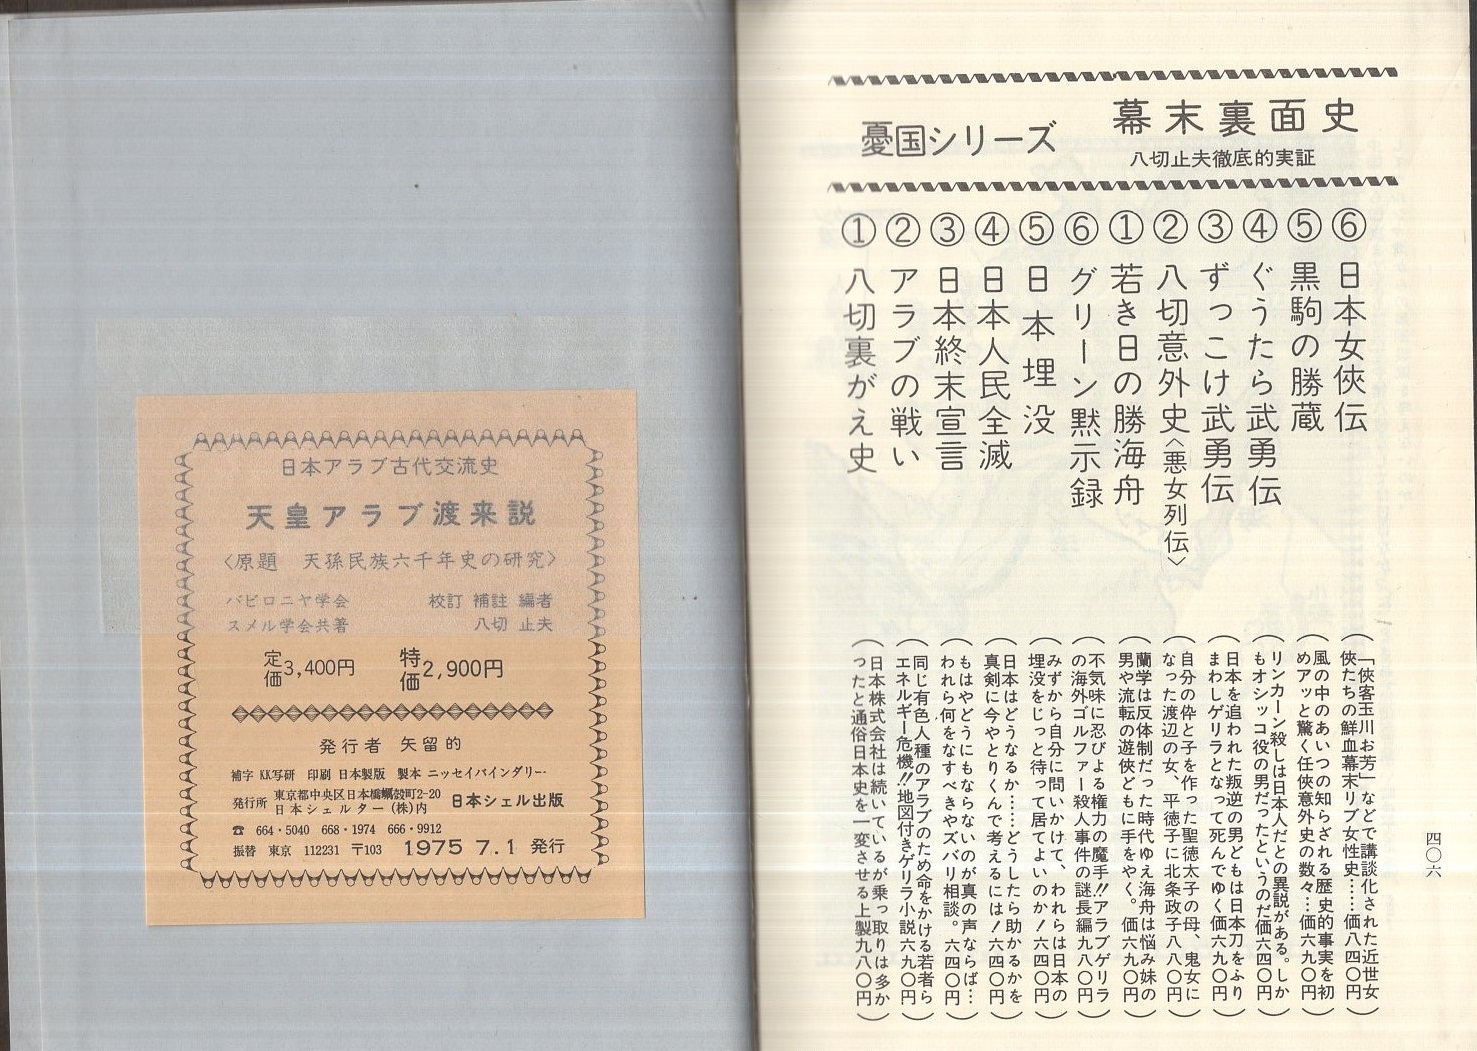 幕末裏面史
八切止夫徹底的実証
憂国シリーズ
⑥日本女俠伝
(「俠客玉川お芳」などで講談化された近世女
俠たちの鮮血幕末リブ女性史……価八四〇円)
⑤黒駒の勝蔵
(風の中のあいつの知らざれる歴史的事実を初
めアッと驚く任俠意外史の数々…価六九〇円)
④ぐうたら武勇伝
(リンカーン殺しは日本人だとの異説がある。しか
もオシッコ役の男だったというのだ価六四〇円)
③ずっこけ武勇伝
(日本を追われた叛逆の男どもは日本刀をふり
まわしゲリラとなって死んでゆく価六九〇円)
②八切意外史〈悪女列伝〉
(自分の伜と子を作った聖徳太子の母、鬼女に
なった渡辺の女、平徳子に北条政子八八〇円)
①若き日の勝海舟
(蘭学は反体制だった時代ゆえ海舟は悩み妹の
男や流転の遊俠どもに手をやく。価六九〇円)
⑥グリーン黙示録
(不気味に忍びよる権力の魔手!!アラブゲリラ
の海外ゴルファー殺人事件の謎長編九八〇円)
⑤日本埋没
(みずから自分に問いかけて、われらは日本の
埋没をじっと待って居てよいのか!六四〇円)
④日本人民全滅
(日本はどうなるか……どうしたら助かるかを
真剣に今やとりくんで考えるには!六四〇円)
③日本終末宣言
(もはやどうにもならないのが真の声ならば…
われら何をなすべきやズバリ相談。六四〇円)
②アラブの戦い
(同じ有色人種のアラブのため命をかける若者ら
エネルギー危機!!地図付きゲリラ小説六九〇円)
①八切裏がえ史
(日本株式会社は続いているが乗っ取りは多か
ったと通俗日本史を一変させる上製九八〇円)
四〇六
日本アラブ古代交流史
天皇アラブ渡来説
〈原題 天孫民族六千年史の研究〉
バビロニヤ学会 校訂 補註 編者
スメル学会共著 八切 止夫
定価3,400円 特価2,900円
発行者 矢留的
補字 KK写研 印刷 日本製版 製本 ニッセイバインダリー
発行所 東京都中央区日本橋蠣殼町2-20
日本シェルター(株)内 日本シェル出版
☎ 664・5040 668・1974 666・9912
振替 東京 112231 〒103 1975 7.1 発行